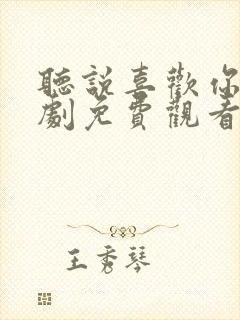 聽說喜歡你
劇免費觀看
王秀琴